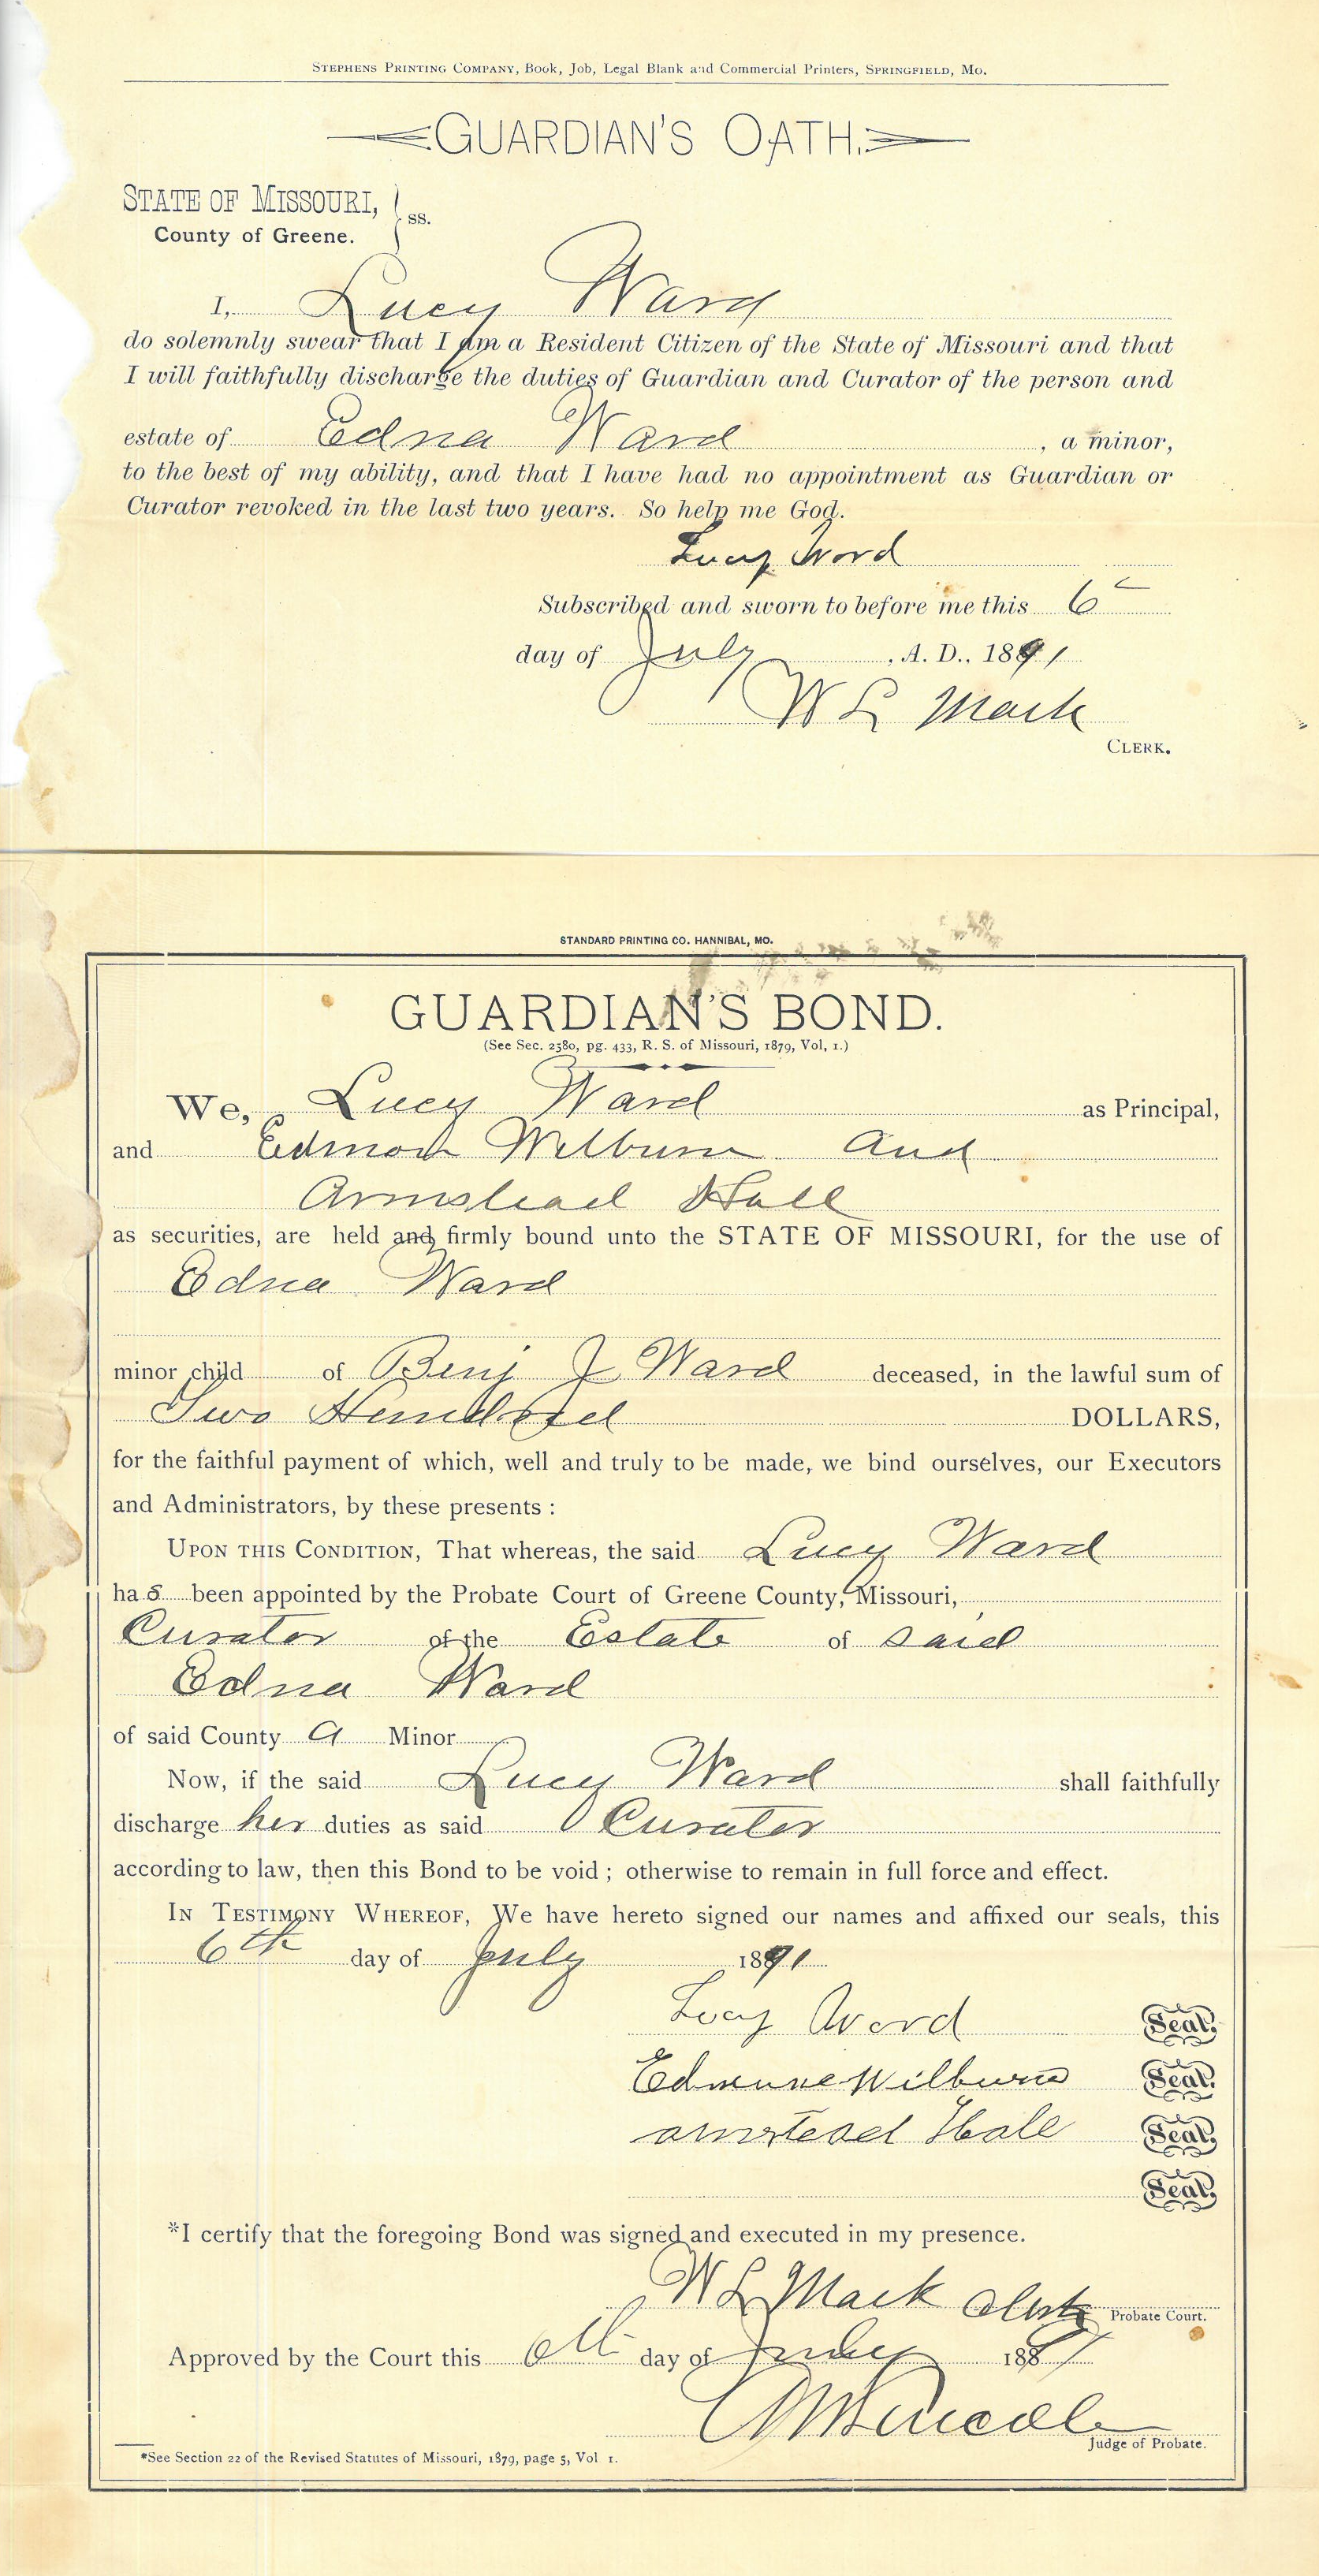 STEPHENS PRINTING COMPANY, Book, Job, Legal Blank and Commercial Printers, SPRINGFIELD, MO.
GUARDIAN'S OATH.
STATE OF MISSOURI, } ss.
County of Greene.
I, Lucy Ward
do solemnly swear that I am a Resident Citizen of the State of Missouri and that
I will faithfully discharge the duties of Guardian and Curator of the person and
estate of Edna Ward , a minor,
to the best of my ability, and that I have had no appointment as Guardian or
Curator revoked in the last two years. So help me God.
Lucy Word
Subscribed and sworn to before me this 6
day of July , A. D., 1891
W L Mack
CLERK.
STANDARD PRINTING CO. HANNIBAL, MO.
GUARDIAN'S BOND.
(See Sec. 2580, pg. 433, R. S. of Missouri, 1879, Vol, 1.)
We, Lucy Ward as Principal,
and Edmond Wilburn and
Armstead Hall
as securities, are held and firmly bound unto the STATE OF MISSOURI, for the use of
Edna Ward
minor child of Benj J Ward deceased, in the lawful sum of
Two Hundred DOLLARS,
for the faithful payment of which, well and truly to be made, we bind ourselves, our Executors
and Administrators, by these presents :
UPON THIS CONDITION, That whereas, the said Lucy Ward
has been appointed by the Probate Court of Greene County, Missouri,
Curator of the Estate of said
Edna Ward
of said County a Minor
Now, if the said Lucy Ward shall faithfully
discharge her duties as said Curator
according to law, then this Bond to be void ; otherwise to remain in full force and effect.
IN TESTIMONY WHEREOF, We have hereto signed our names and affixed our seals, this
6th day of July 1891
Lucy Word Seal.
Wilburn Seal.
Hall Seal.
Seal.
*I certify that the foregoing Bond was signed and executed in my presence.
W L Mack Clerk Probate Court.
Approved by the Court this 6th day of July 1891
Judge of Probate.
*See Section 22 of the Revised Statutes of Missouri, 1879, page 5, Vol 1.